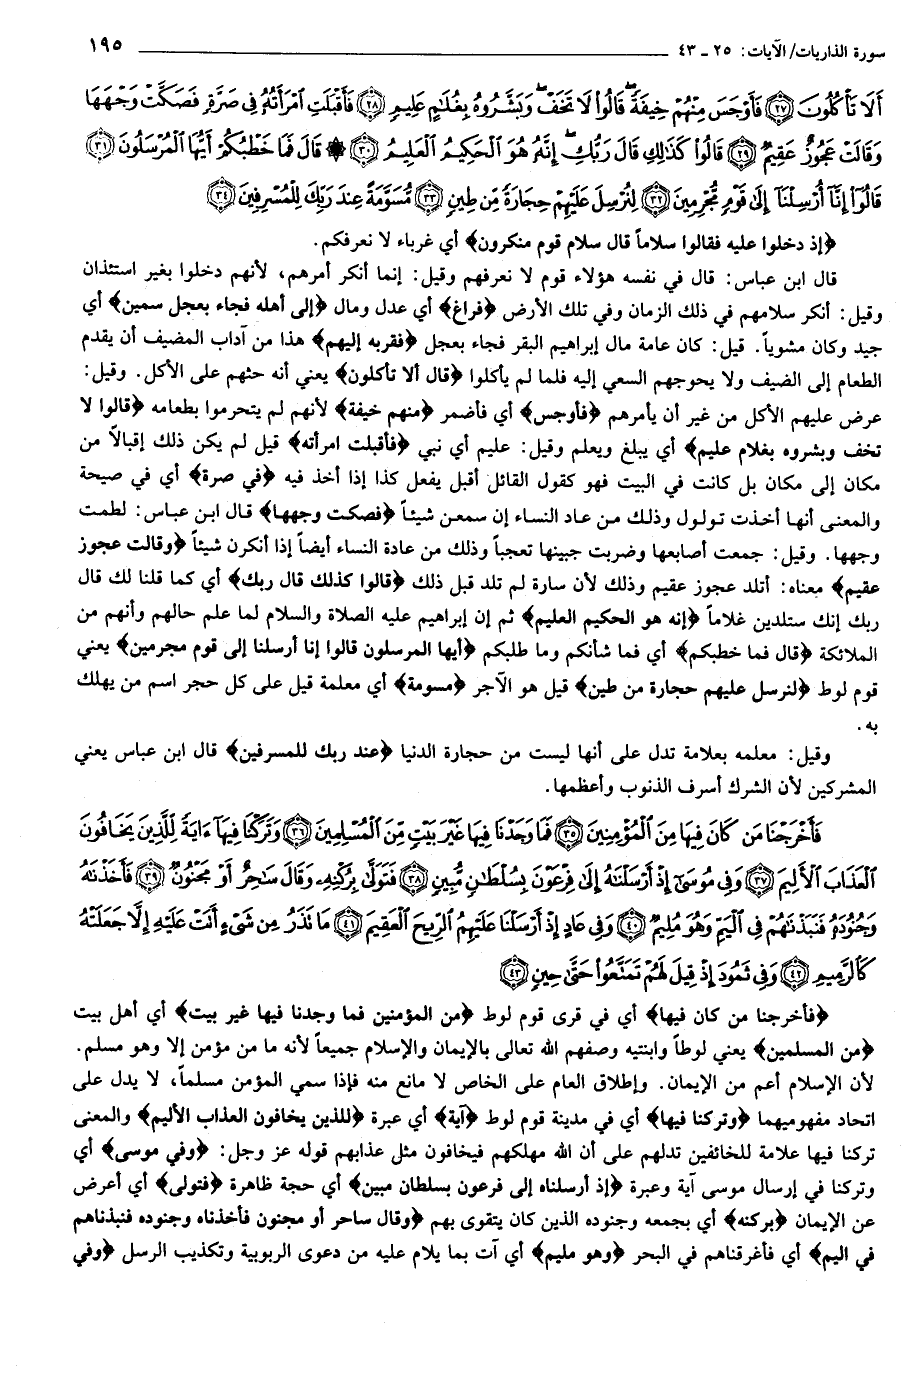 سورة الذاريات/ الآيات: ٢٥ ـ ٤٣
١٩٥
أَلَا تَأْكُلُونَ ﴿٢٧﴾ فَأَوْجَسَ مِنْهُمْ خِيفَةً قَالُوا۟ لَا تَخَفْ وَبَشَّرُوهُ بِغُلَٰمٍ عَلِيمٍ ﴿٢٨﴾ فَأَقْبَلَتِ ٱمْرَأَتُهُۥ فِى صَرَّةٍ فَصَكَّتْ وَجْهَهَا
وَقَالَتْ عَجُوزٌ عَقِيمٌ ﴿٢٩﴾ قَالُوا۟ كَذَٰلِكِ قَالَ رَبُّكِ إِنَّهُۥ هُوَ ٱلْحَكِيمُ ٱلْعَلِيمُ ﴿٣٠﴾ ۞ قَالَ فَمَا خَطْبُكُمْ أَيُّهَا ٱلْمُرْسَلُونَ ﴿٣١﴾
قَالُوٓا۟ إِنَّآ أُرْسِلْنَآ إِلَىٰ قَوْمٍ مُّجْرِمِينَ ﴿٣٢﴾ لِنُرْسِلَ عَلَيْهِمْ حِجَارَةً مِّن طِينٍ ﴿٣٣﴾ مُّسَوَّمَةً عِندَ رَبِّكَ لِلْمُسْرِفِينَ ﴿٣٤﴾
﴿إذ دخلوا عليه فقالوا سلاماً قال سلام قوم منكرون﴾ أي غرباء لا نعرفكم.
قال ابن عباس: قال في نفسه هؤلاء قوم لا نعرفهم وقيل: إنما أنكر أمرهم، لأنهم دخلوا بغير استئذان
وقيل: أنكر سلامهم في ذلك الزمان وفي تلك الأرض ﴿فراغ﴾ أي عدل ومال ﴿إلى أهله فجاء بعجل سمين﴾ أي
جيد وكان مشوياً. قيل: كان عامة مال إبراهيم البقر فجاء بعجل ﴿فقربه إليهم﴾ هذا من آداب المضيف أن يقدم
الطعام إلى الضيف ولا يحوجهم السعي إليه فلما لم يأكلوا ﴿قال ألا تأكلون﴾ يعني أنه حثهم على الأكل. وقيل:
عرض عليهم الأكل من غير أن يأمرهم ﴿فأوجس﴾ أي فأضمر ﴿منهم خيفة﴾ لأنهم لم يتحرموا بطعامه ﴿قالوا لا
تخف وبشروه بغلام عليم﴾ أي يبلغ ويعلم وقيل: عليم أي نبي ﴿فأقبلت امرأته﴾ قيل لم يكن ذلك إقبالاً من
مكان إلى مكان بل كانت في البيت فهو كقول القائل أقبل يفعل كذا إذا أخذ فيه ﴿في صرة﴾ أي في صيحة
والمعنى أنها أخذت تولول وذلك من عاد النساء إن سمعن شيئاً ﴿فصكت وجهها﴾ قال ابن عباس: لطمت
وجهها. وقيل: جمعت أصابعها وضربت جبينها تعجباً وذلك من عادة النساء أيضاً إذا أنكرن شيئاً ﴿وقالت عجوز
عقيم﴾ معناه: أتلد عجوز عقيم وذلك لأن سارة لم تلد قبل ذلك ﴿قالوا كذلك قال ربك﴾ أي كما قلنا لك قال
ربك إنك ستلدين غلاماً ﴿إنه هو الحكيم العليم﴾ ثم إن إبراهيم عليه الصلاة والسلام لما علم حالهم وأنهم من
الملائكة ﴿قال فما خطبكم﴾ أي فما شأنكم وما طلبكم ﴿أيها المرسلون قالوا إنا أرسلنا إلى قوم مجرمين﴾ يعني
قوم لوط ﴿لنرسل عليهم حجارة من طين﴾ قيل هو الآجر ﴿مسومة﴾ أي معلمة قيل على كل حجر اسم من يهلك
به.
وقيل: معلمه بعلامة تدل على أنها ليست من حجارة الدنيا ﴿عند ربك للمسرفين﴾ قال ابن عباس يعني
المشركين لأن الشرك أسرف الذنوب وأعظمها.
فَأَخْرَجْنَا مَن كَانَ فِيهَا مِنَ ٱلْمُؤْمِنِينَ ﴿٣٥﴾ فَمَا وَجَدْنَا فِيهَا غَيْرَ بَيْتٍ مِّنَ ٱلْمُسْلِمِينَ ﴿٣٦﴾ وَتَرَكْنَا فِيهَآ ءَايَةً لِّلَّذِينَ يَخَافُونَ
ٱلْعَذَابَ ٱلْأَلِيمَ ﴿٣٧﴾ وَفِى مُوسَىٰٓ إِذْ أَرْسَلْنَٰهُ إِلَىٰ فِرْعَوْنَ بِسُلْطَٰنٍ مُّبِينٍ ﴿٣٨﴾ فَتَوَلَّىٰ بِرُكْنِهِۦ وَقَالَ سَٰحِرٌ أَوْ مَجْنُونٌ ﴿٣٩﴾ فَأَخَذْنَٰهُ
وَجُنُودَهُۥ فَنَبَذْنَٰهُمْ فِى ٱلْيَمِّ وَهُوَ مُلِيمٌ ﴿٤٠﴾ وَفِى عَادٍ إِذْ أَرْسَلْنَا عَلَيْهِمُ ٱلرِّيحَ ٱلْعَقِيمَ ﴿٤١﴾ مَا تَذَرُ مِن شَىْءٍ أَتَتْ عَلَيْهِ إِلَّا جَعَلَتْهُ
كَٱلرَّمِيمِ ﴿٤٢﴾ وَفِى ثَمُودَ إِذْ قِيلَ لَهُمْ تَمَتَّعُوا۟ حَتَّىٰ حِينٍ ﴿٤٣﴾
﴿فأخرجنا من كان فيها﴾ أي في قرى قوم لوط ﴿من المؤمنين فما وجدنا فيها غير بيت﴾ أي أهل بيت
﴿من المسلمين﴾ يعني لوطاً وابنتيه وصفهم الله تعالى بالإيمان والإسلام جميعاً لأنه ما من مؤمن إلا وهو مسلم.
لأن الإسلام أعم من الإيمان. وإطلاق العام على الخاص لا مانع منه فإذا سمي المؤمن مسلماً، لا يدل على
اتحاد مفهوميهما ﴿وتركنا فيها﴾ أي في مدينة قوم لوط ﴿آية﴾ أي عبرة ﴿للذين يخافون العذاب الأليم﴾ والمعنى
تركنا فيها علامة للخائفين تدلهم على أن الله مهلكهم فيخافون مثل عذابهم قوله عز وجل: ﴿وفي موسى﴾ أي
وتركنا في إرسال موسى آية وعبرة ﴿إذ أرسلناه إلى فرعون بسلطان مبين﴾ أي حجة ظاهرة ﴿فتولى﴾ أي أعرض
عن الإيمان ﴿بركنه﴾ أي بجمعه وجنوده الذين كان يتقوى بهم ﴿وقال ساحر أو مجنون فأخذناه وجنوده فنبذناهم
في اليم﴾ أي فأغرقناهم في البحر ﴿وهو مليم﴾ أي آت بما يلام عليه من دعوى الربوبية وتكذيب الرسل ﴿وفي